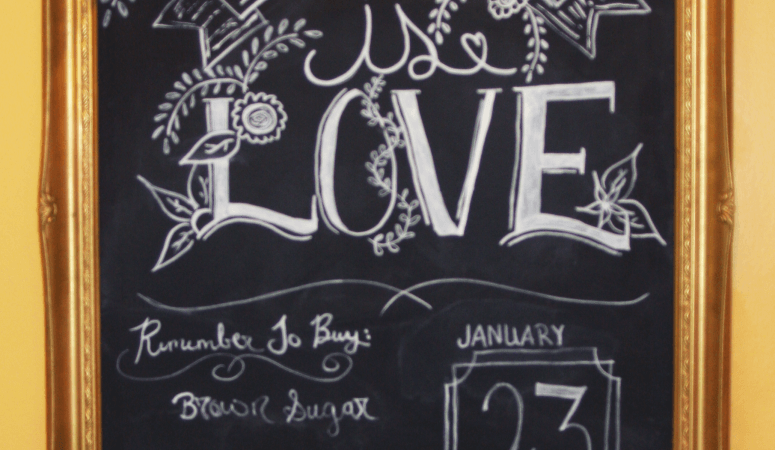 is
LOVE
Remember To Buy:
Brown Sugar
JANUARY
23